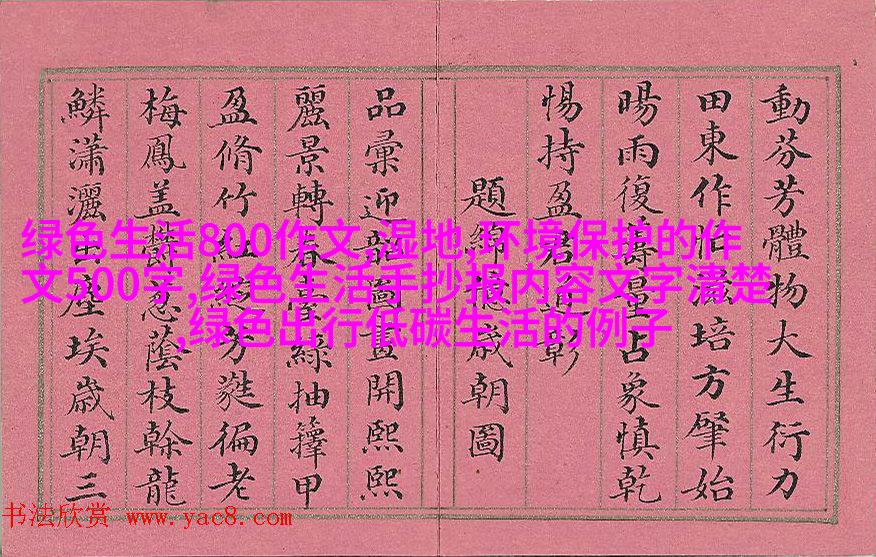 動芬芳體物大生衍力
田東作怡滋培方肇始
暘雨復壽量占象慎乾
惕持盈君道彰
題綿億歲朝圖
品彙迎韶圖畫開熙熙
麗景轉春臺綠抽籜甲
盈脩竹紅蕤徧老
梅鳳蓋鬱蔭枝榦龍
鱗瀟灑塵埃歲朝三
绿色生活800作文,湿地,环境保护的作
文500字,绿色生活手抄报内容文字清楚
,绿色出行低碳生活的例子
书法欣赏 www.yac8.com